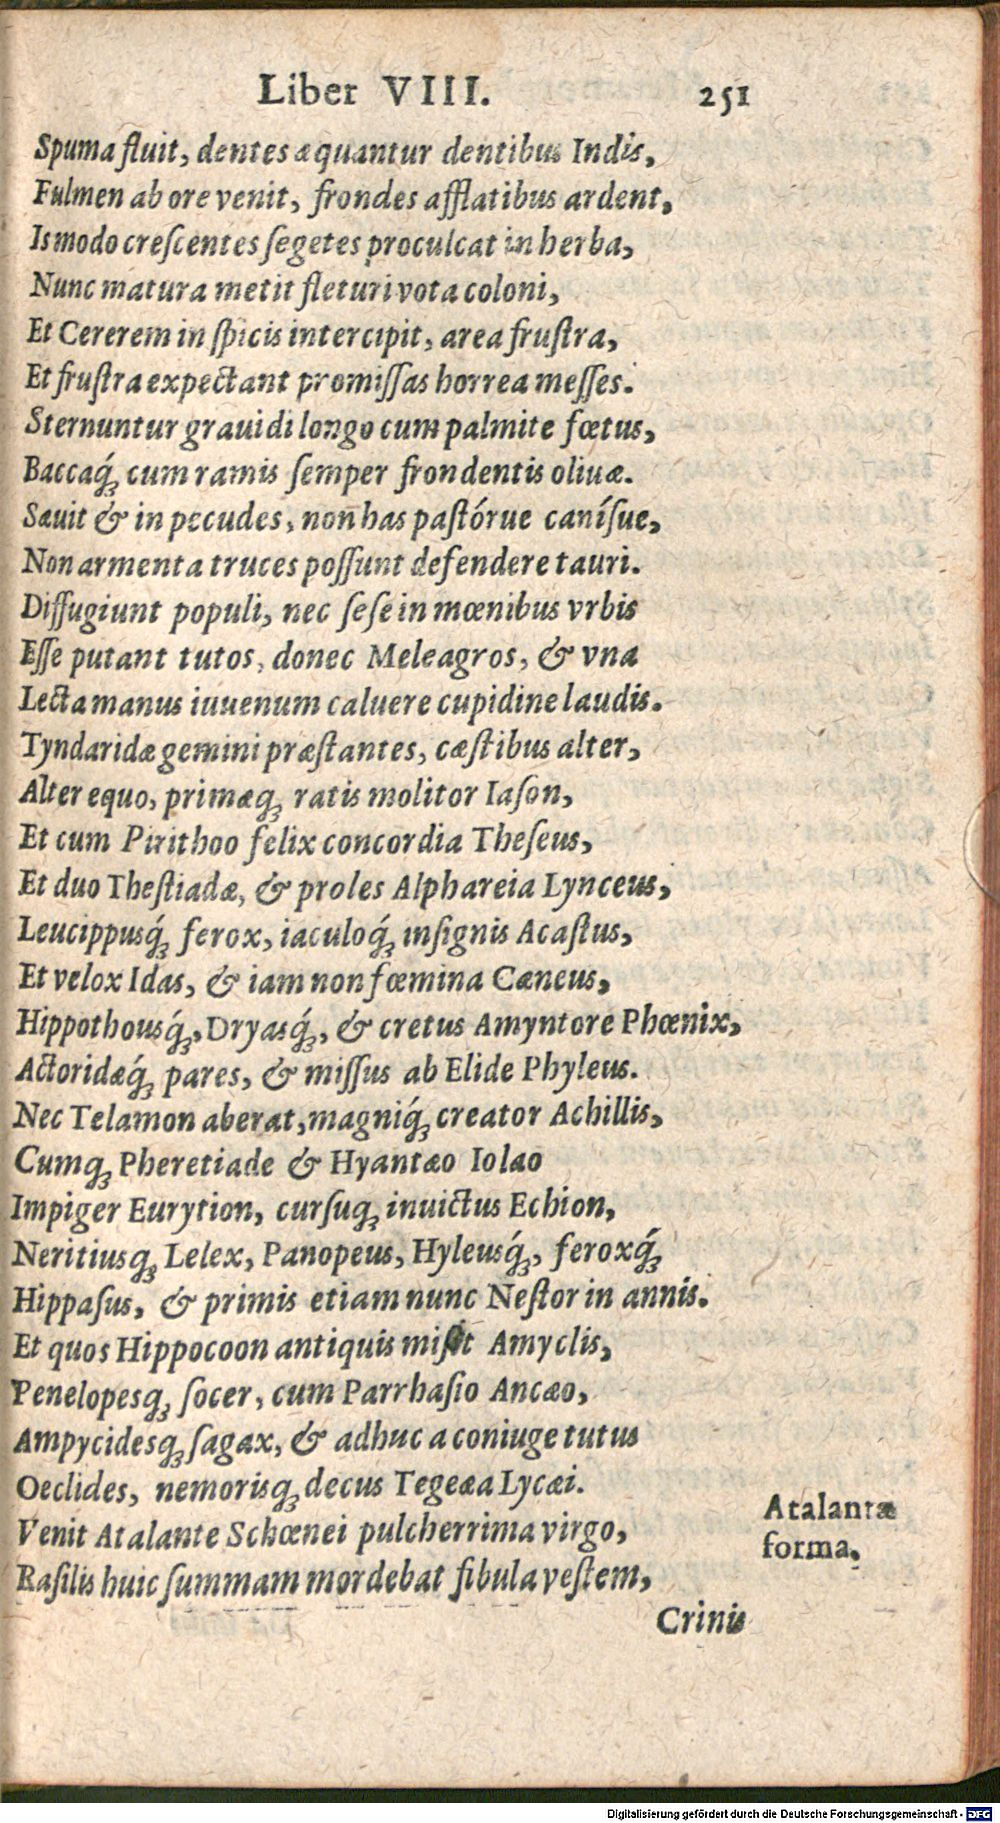 Liber VIII. 251
Spuma fluit, dentes æquantur dentibus Indis,
Fulmen ab ore venit, frondes afflatibus ardent,
Is modo creſcentes ſegetes proculcat in herba,
Nunc matura metit fleturi vota coloni,
Et Cererem in ſpicis intercipit, area fruſtra,
Et fruſtra expectant promiſſas horrea meſſes.
Sternuntur grauidi longo cum palmite fœtus,
Baccaq́; cum ramis ſemper frondentis oliuæ.
Sæuit & in pecudes, non has paſtórue caníſue,
Non armenta truces poſſunt defendere tauri.
Diffugiunt populi, nec ſeſe in mœnibus vrbis
Eſſe putant tutos, donec Meleagros, & vna
Lecta manus iuuenum caluere cupidine laudis.
Tyndaridæ gemini præſtantes, cæſtibus alter,
Alter equo, primæq; ratis molitor Iaſon,
Et cum Pirithoo felix concordia Theſeus,
Et duo Theſtiadæ, & proles Alphareia Lynceus,
Leucippusq́; ferox, iaculoq́; inſignis Acaſtus,
Et velox Idas, & iam non fœmina Cæneus,
Hippothousq́;, Dryasq́;, & cretus Amyntore Phœnix,
Actoridæq́; pares, & miſſus ab Elide Phyleus.
Nec Telamon aberat, magniq́; creator Achillis,
Cumq; Pheretiade & Hyantæo Iolao
Impiger Eurytion, curſuq; inuictus Echion,
Neritiusq; Lelex, Panopeus, Hyleusq́;, feroxq́;
Hippaſus, & primis etiam nunc Neſtor in annis.
Et quos Hippocoon antiquis miſit Amyclis,
Penelopesq; ſocer, cum Parrhaſio Ancæo,
Ampycidesq; ſagax, & adhuc a coniuge tutus
Oeclides, nemorisq; decus Tegeæa Lycæi.
Venit Atalante Schœnei pulcherrima virgo,
Raſilis huic ſummam mordebat fibula veſtem,
Atalantæ
forma.
Crinis
Digitalisierung gefördert durch die Deutsche Forschungsgemeinschaft - DFG